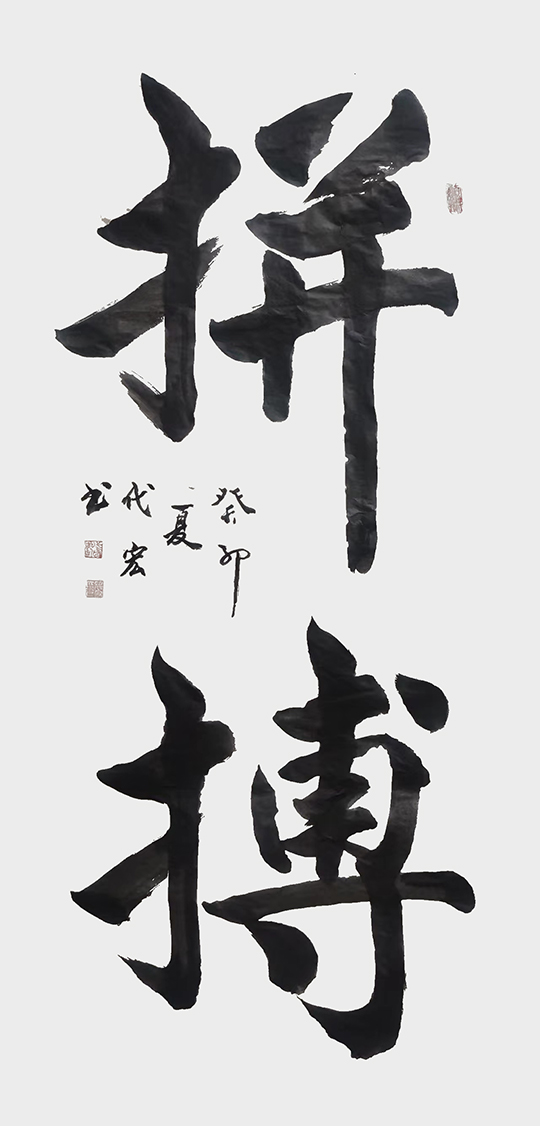 拼搏
癸卯
夏
代宏
书